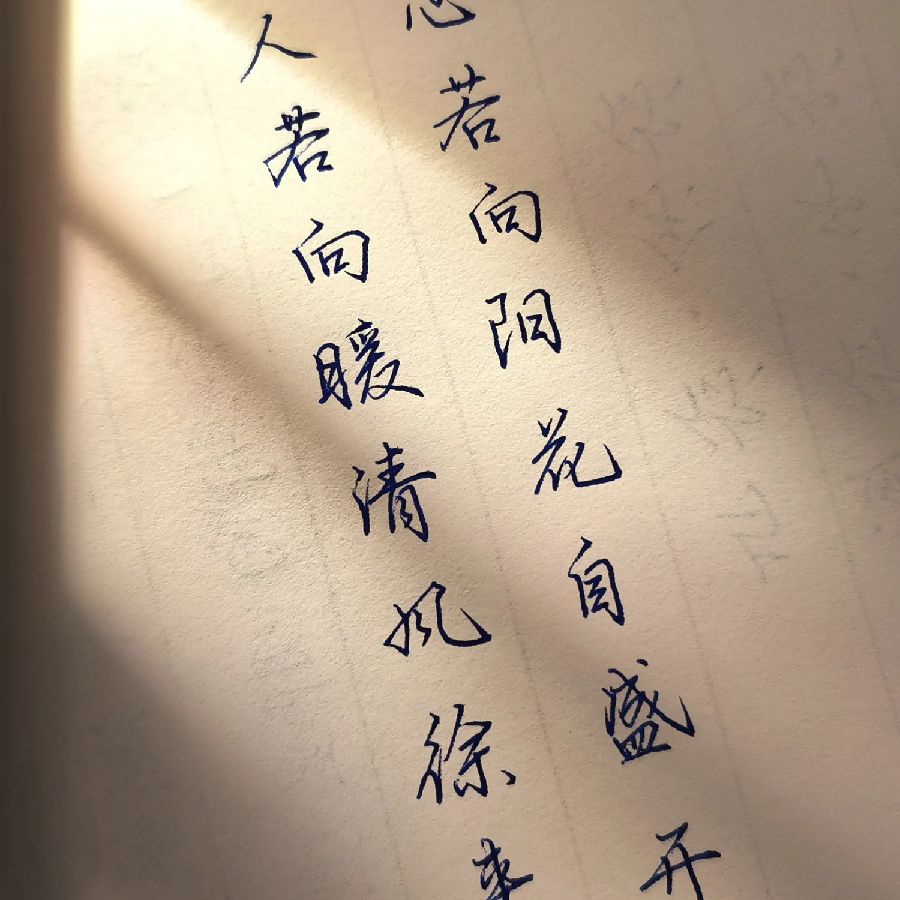 心若向阳花自盛开
人若向暖清风徐来